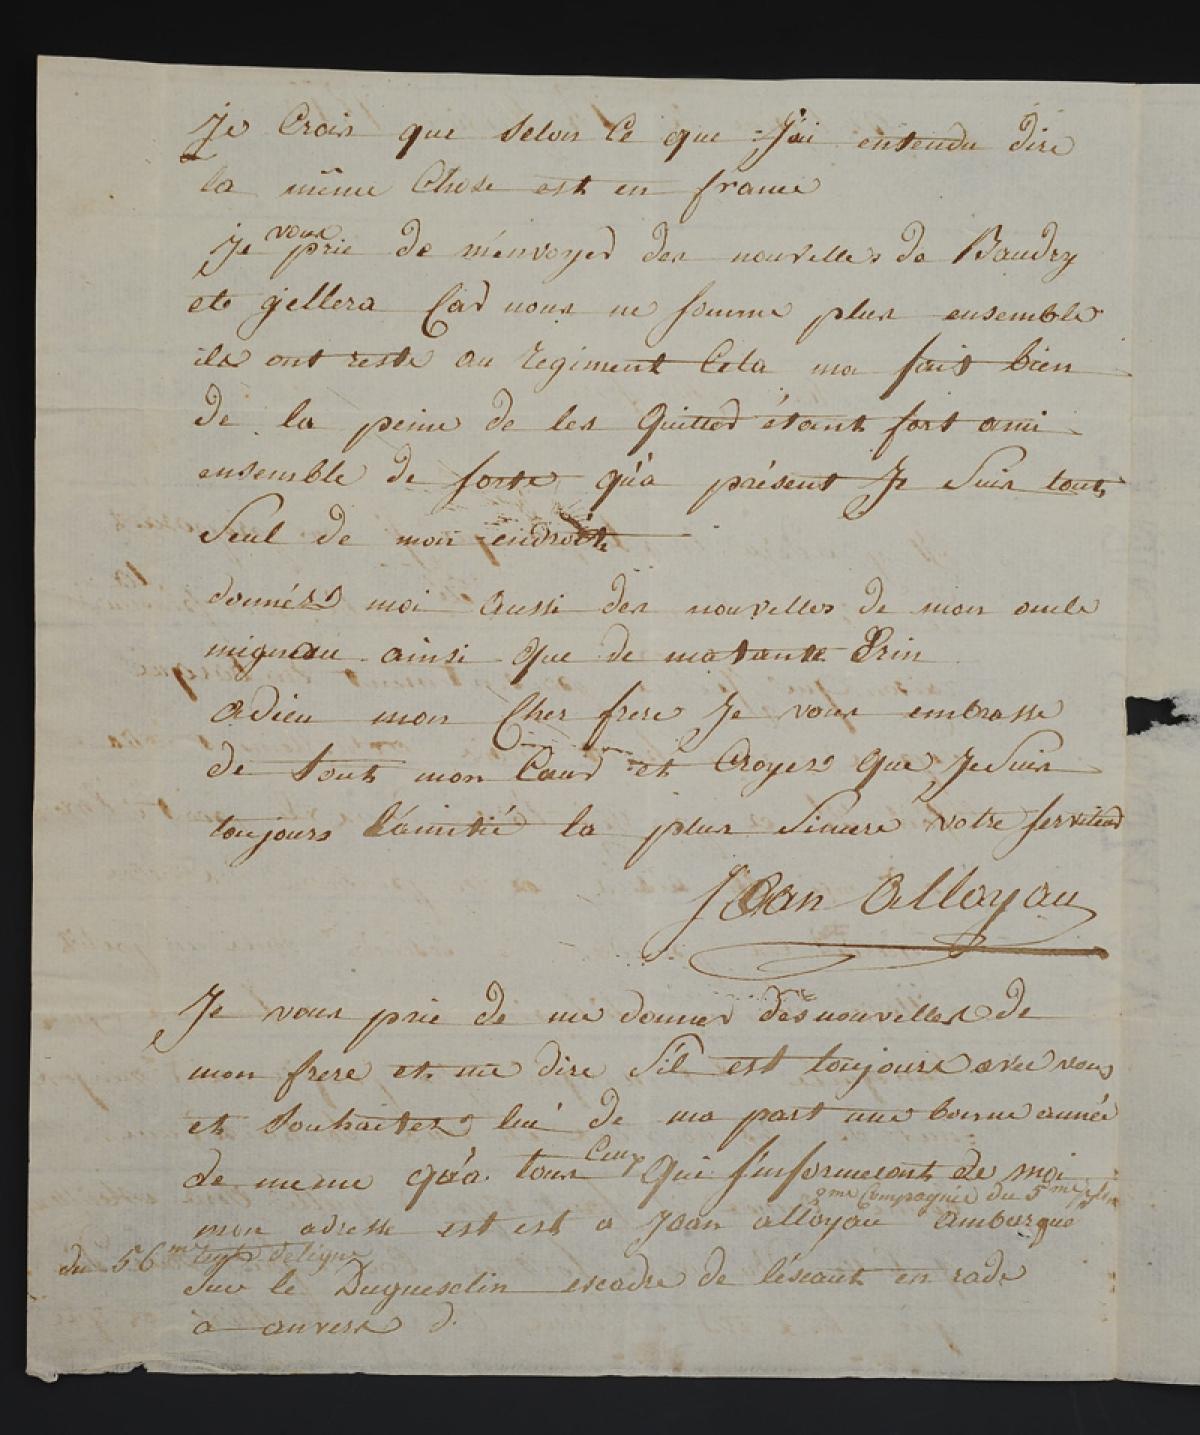 je Crois que selon Ce que J'ai entendu dire
la même Chose est en france
je vous prie de m'envoyer des nouvelles de Baudry
et gellera Car nous ne somme plus ensemble
ils ont resté au regiment Cela ma fait bien
de la peine de les quitter étant fort ami
ensemble de sorte qu'a présent Je suis tout
seul de mon endroit
donnéz moi aussi des nouvelles de mon oncle
mignau ainsi que de matante Prin
adieu mon Cher frere Je vous embrasse
de tout mon Cœur et Croyez que Je suis
toujours l'amitié la plus sincere votre serviteur
Jean alloyau
Je vous prie de me donner des nouvelles de
mon frere et me dire s'il est toujours avec vous
et souhaitez lui de ma part une bonne année
de meme qu'a tous Ceux qui s'informeront de moi
mon adresse est est a Jean alloyau 2me Compagnie du 5me
du 56me de ligne ambarque
sur le Duguesclin escadre de l'éscaut en rade
a anvers d.